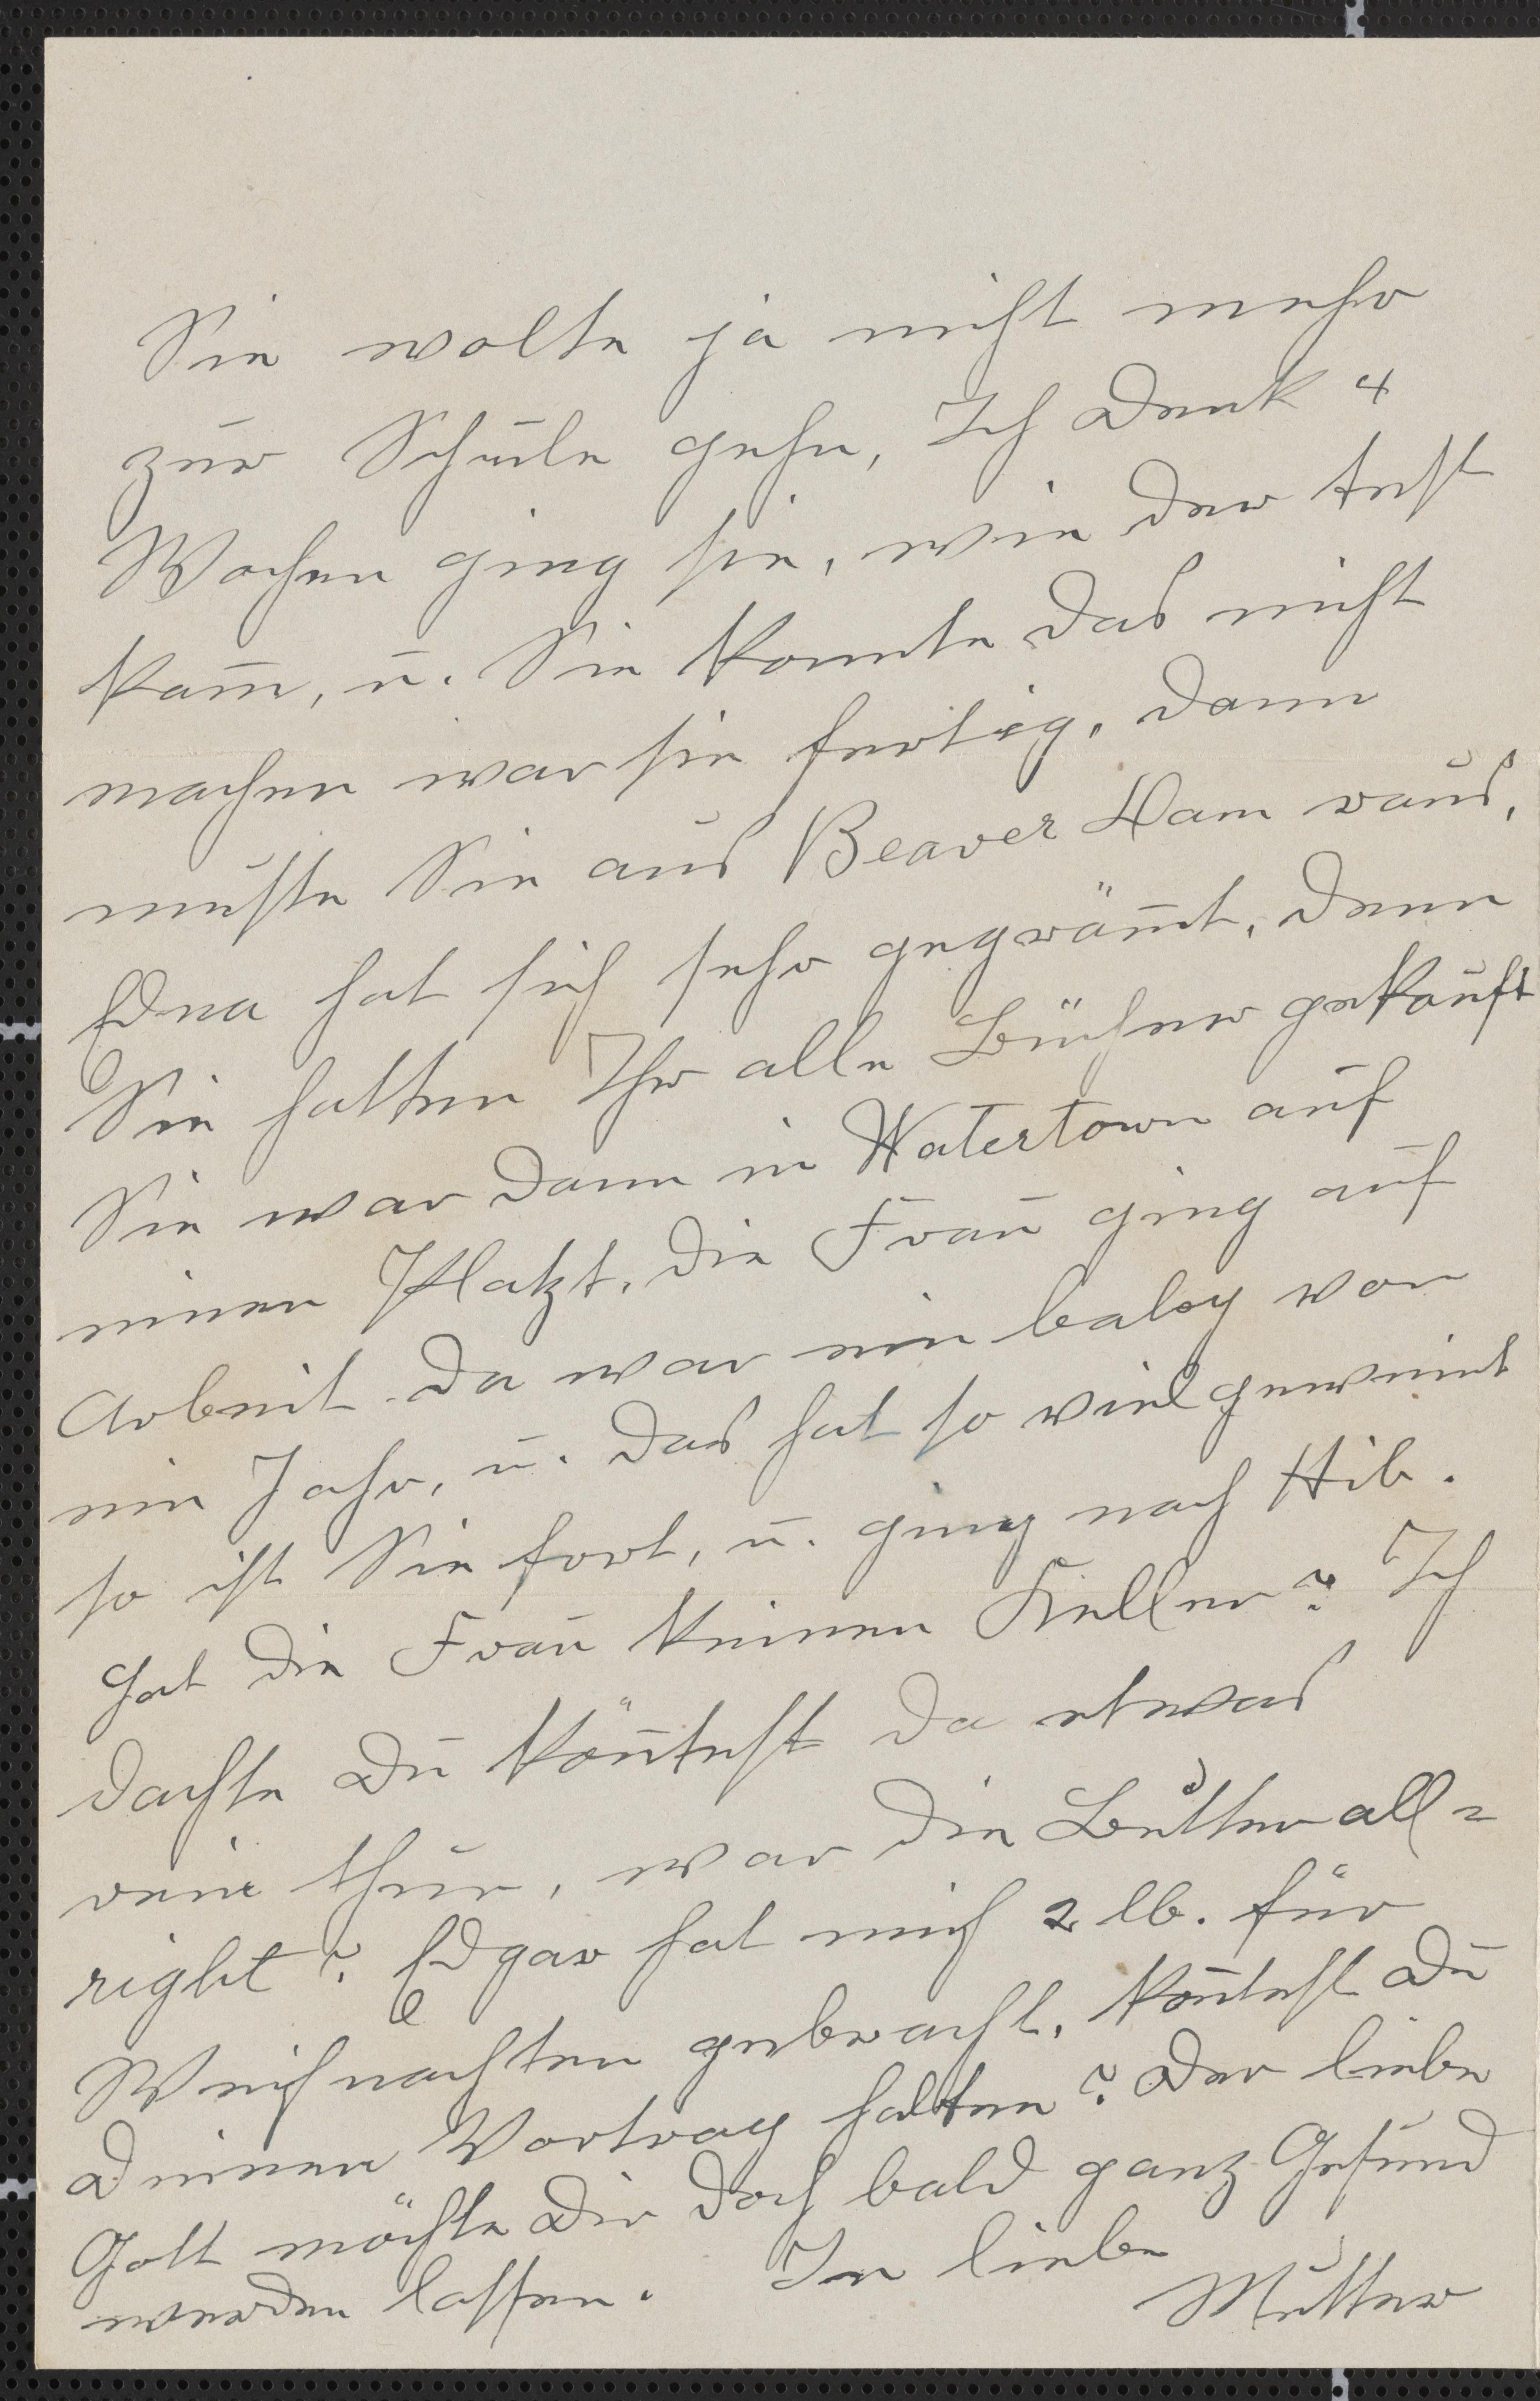 Sie wolte ja nicht mehr
zur Schule gehn, Ich denk 4
Wochen ging sie, wie der test
kam, u. Sie konnte das nicht
machen war sie fertig, dann
muste Sie aus Beaver Dam raus,
Edna hat sich sehr gegrämt, denn
Sie hatten Ihr alle Bücher gekauft
Sie war dann in Watertown auf
einen Platzt. die Frau ging auf
Arbeit da war ein baby von
ein Jahr, u. das hat so viel geweint
so ist Sie fort, u. ging nach Hib.
hat die Frau keinen Keller? Ich
dachte Du köntest da etwas
rein thun, war die Butter all=
right? Edgar hat mich 2 lb. für
Weihnachten gebracht. köntest Du
Deinen Vortrag halten? Der liebe
Gott möchte Dir doch bald ganz Gesund
werden lassen. In liebe
Mutter